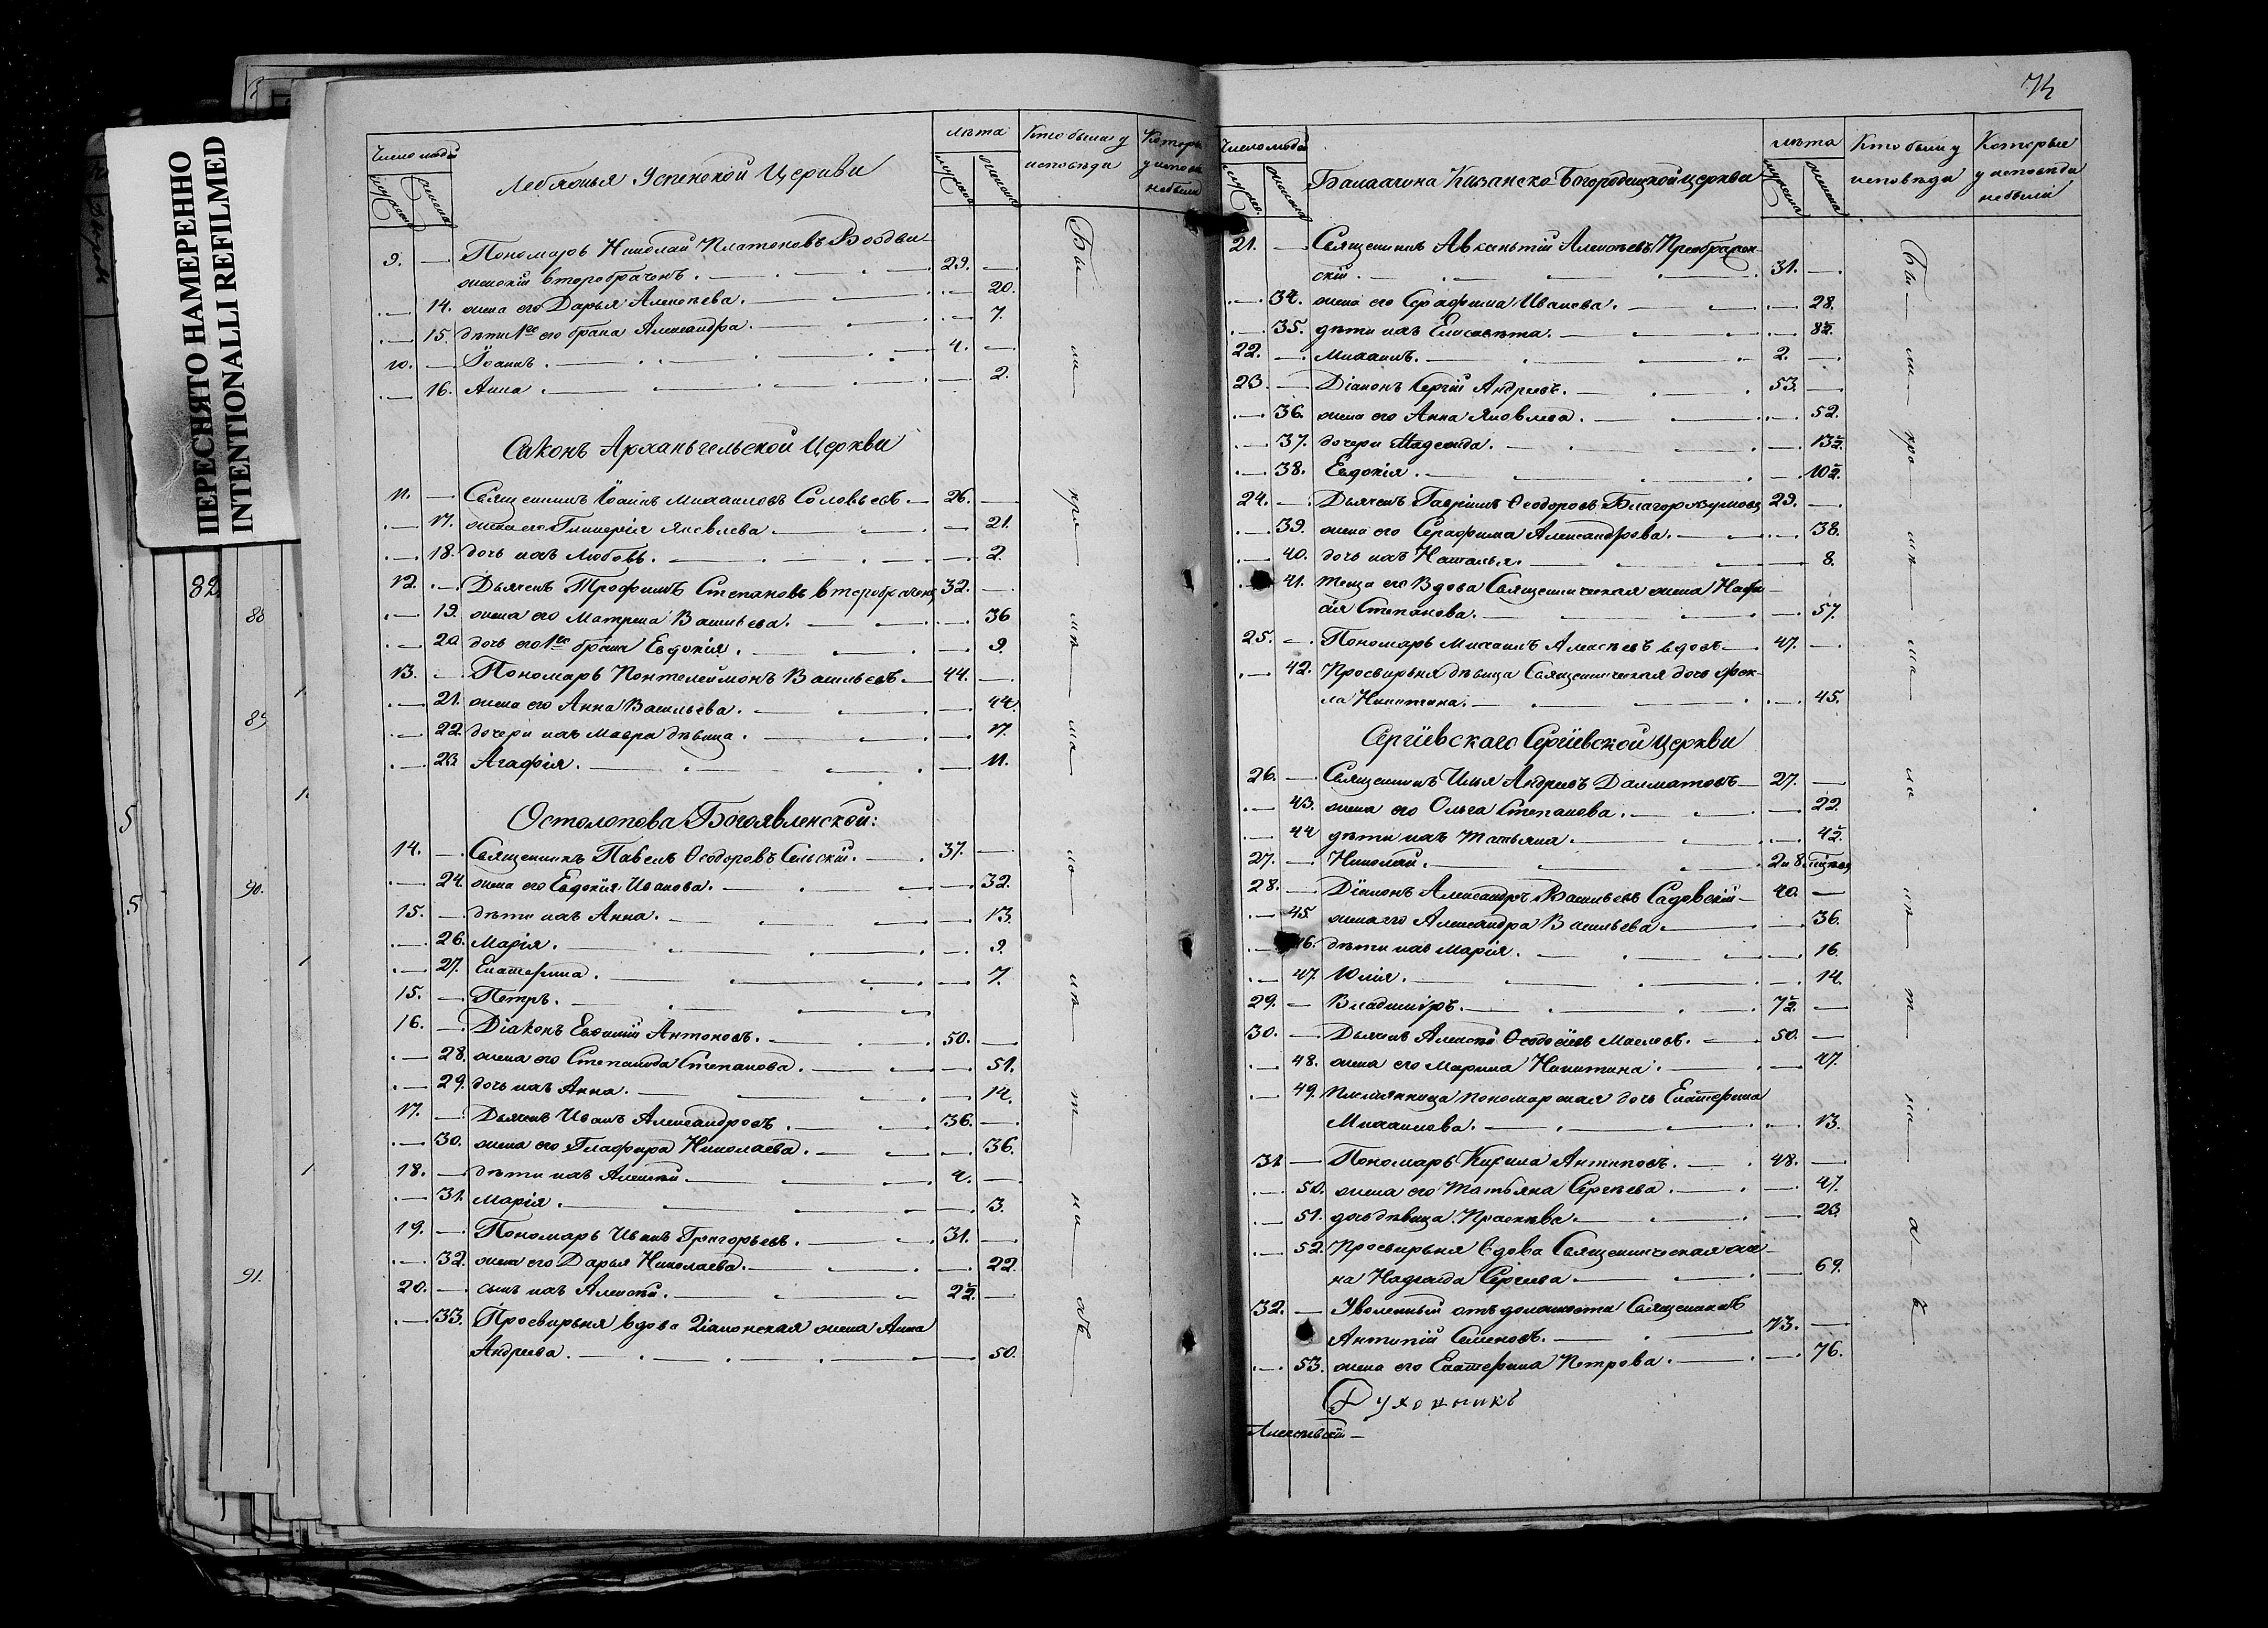 ПЕРЕСНЯТО НАМЕРЕННО
INTENTIONALLI REFILMED
82
88
89
90.
91.
5
5
Число людей
мужеска
женска
Лебяжья Успенской Церкви
лѣта
мужеска
женска
Кто были у
исповѣди
Которые
у исповѣди
небыли
9. — Пономарь Николай Платоновъ Воздви-
женскій второбрачонъ. — 29. —
— 14. жена его Дарья Алексѣева. — 20.
— 15. дѣти 1го его брака Александра. — 7.
10. — Іоаннъ. — 4. —
— 16. Анна. — 2.
Саконъ Архангельской Церкви
11. — Священникъ Іоаннъ Михаиловъ Соловьевъ — 26. —
— 17. жена его Гликерія Яковлева — 21.
— 18. дочь ихъ Любовь. — 2.
12. — Дьячекъ Трофимъ Степановъ второбрачонъ 32. —
— 19. жена его Матрена Васильева. — 36
— 20 дочь его 1го брака Евдокія. — 9.
13. — Пономарь Понтелеймонъ Васильевъ — 44. —
— 21. жена его Анна Васильева. — 44.
— 22. дочери ихъ Мавра дѣвица. — 17.
— 23 Агафія. — 11.
Остолопова Богоявленской:
14. — Священникъ Павелъ Ѳеодоровъ Сельскій. — 37. —
— 24. жена его Евдокія Иванова. — 32.
15. — дѣти ихъ Анна. — 13.
— 26. Марія. — 9.
— 27. Екатерина. — 7.
15. — Петръ. —
16. — Діаконъ Евфимій Антоновъ. — 50. —
— 28. жена его Степанида Степанова. — 51.
— 29. дочь ихъ Анна. — 14.
17. — Дьячекъ Иванъ Александровъ. — 36. —
— 30. жена его Глафира Николаева. — 36.
18. — дѣти ихъ Алексѣй — 4. —
— 31. Марія. — 3.
19. — Пономарь Иванъ Григорьевъ. — 31. —
— 32. жена его Дарья Николаева. — 22.
20. — сынъ ихъ Алексѣй. — 2½ —
— 33. Просвирня вдова Діаконская жена Анна
Андреева. — 50.
74
Число людей
мужеска
женска
Балдачина Казанско-Богородицкой церкви
лѣта
мужеска
женска
Кто были у
исповѣди
Которые
у исповѣди
небыли
21. — Священникъ Авксентій Алексѣевъ Преображен-
скій. — 31. —
— 34. жена его Серафима Иванова. — 28.
— 35. дѣти ихъ Елисавета. — 8½.
22. — Михаилъ. — 2. —
23. — Діаконъ Сергій Андреевъ. — 53. —
— 36. жена его Анна Яковлева. — 52.
— 37. дочери Надежда. — 13½.
— 38. Евдокія. — 10½.
24. — Дьячекъ Гавріилъ Ѳеодоровъ Благоразумовъ 29. —
— 39. жена его Серафима Александрова. — 38.
— 40. дочь ихъ Наталья. — 8.
— 41. теща его Вдова Священническая жена
Степанова. — 57.
25. — Пономарь Михаилъ Алексѣевъ вдовъ — 47. —
— 42. Просвирня дѣвица Священническая дочь Фек-
ла Никитина. — 45.
Сергіевскаго Сергіевской церкви
26. — Священникъ Илья Андреевъ Далматовъ — 27. —
— 43. жена его Ольга Степанова. — 22.
— 44 дѣти ихъ Татьяна. — 4½.
27. — Николай. — 2 и 8 мѣсяц
28. — Діаконъ Александръ Васильевъ Садовскій — 40. —
— 45. жена его Александра Васильева — 36.
— 46. дѣти ихъ Марія. — 16.
— 47. Юлія. — 14.
29. — Владиміръ. — 7½. —
30. — Дьячекъ Алексѣй Ѳеодосіевъ Масловъ. — 50. —
— 48. жена его Марина Никитина. — 47.
— 49. племянница пономарская дочь Екатерина
Михаилова. — 13.
31 — Пономарь Кирила Антиповъ. — 48. —
— 50. жена его Татьяна Сергѣева. — 47.
— 51. дочь дѣвица Прасковья. — 23.
— 52. Просвирня вдова Священническая же-
на Надежда Сергѣева — 69.
32. — Уволенный отъ должности Священникъ
Антипій Семеновъ. — 73. —
— 53. жена его Екатерина Петрова. — 76.
Духовникъ